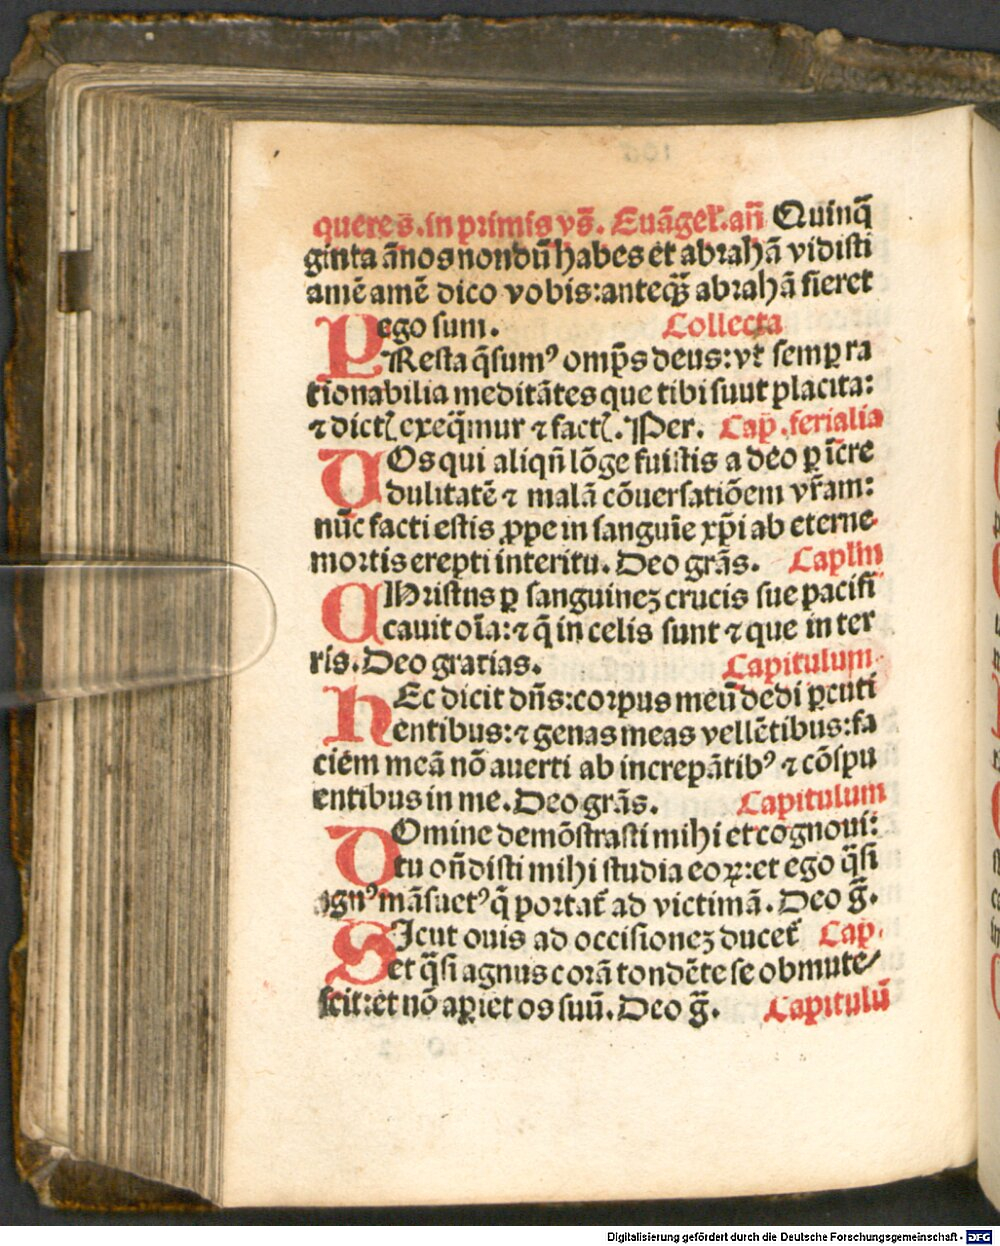 quere s̄. in primis vs̄. Euāgel̄. añ Quinq̄
ginta ānos nondū habes et abrahā vidisti
amē amē dico vobis: anteq̄ꝫ abrahā fieret
ego sum. Collecta
PResta q̄sumꝰ omp̄s deus: vt semꝑ ra
tionabilia meditātes que tibi suut placita:
⁊ dict̄ exeq̄mur ⁊ fact̄. Per. Cap̄. ferialia
VOs qui aliqn̄ lōge fuistis a deo ꝑ īcre
dulitatē ⁊ malā cōuersatiōem vr̄am:
nūc facti estis ꝓpe in sanguīe xp̄i ab eterne
mortis erepti interitu. Deo grās. Caplm̄
CHristus ꝑ sanguineꝫ crucis sue pacifi
cauit oīa: ⁊ q̄ in celis sunt ⁊ que in ter
ris. Deo gratias. Capitulum
HEc dicit dn̄s: corpus meū dedi ꝑcuti
entibus: ⁊ genas meas vellētibus: fa
ciem meā nō auerti ab increpātibꝰ ⁊ cōspu
entibus in me. Deo grās. Capitulum
DOmine demōstrasti mihi et cognoui:
tu on̄disti mihi studia eoꝝ: et ego q̄si
agnꝰ māsuetꝰ q̄ portat̄ ad victimā. Deo ḡ.
SIcut ouis ad occisioneꝫ ducet̄ Cap.
et q̄si agnus corā tondēte se obmute/
scit: et nō aꝑiet os suū. Deo ḡ. Capitulū
Digitalisierung gefördert durch die Deutsche Forschungsgemeinschaft - DFG